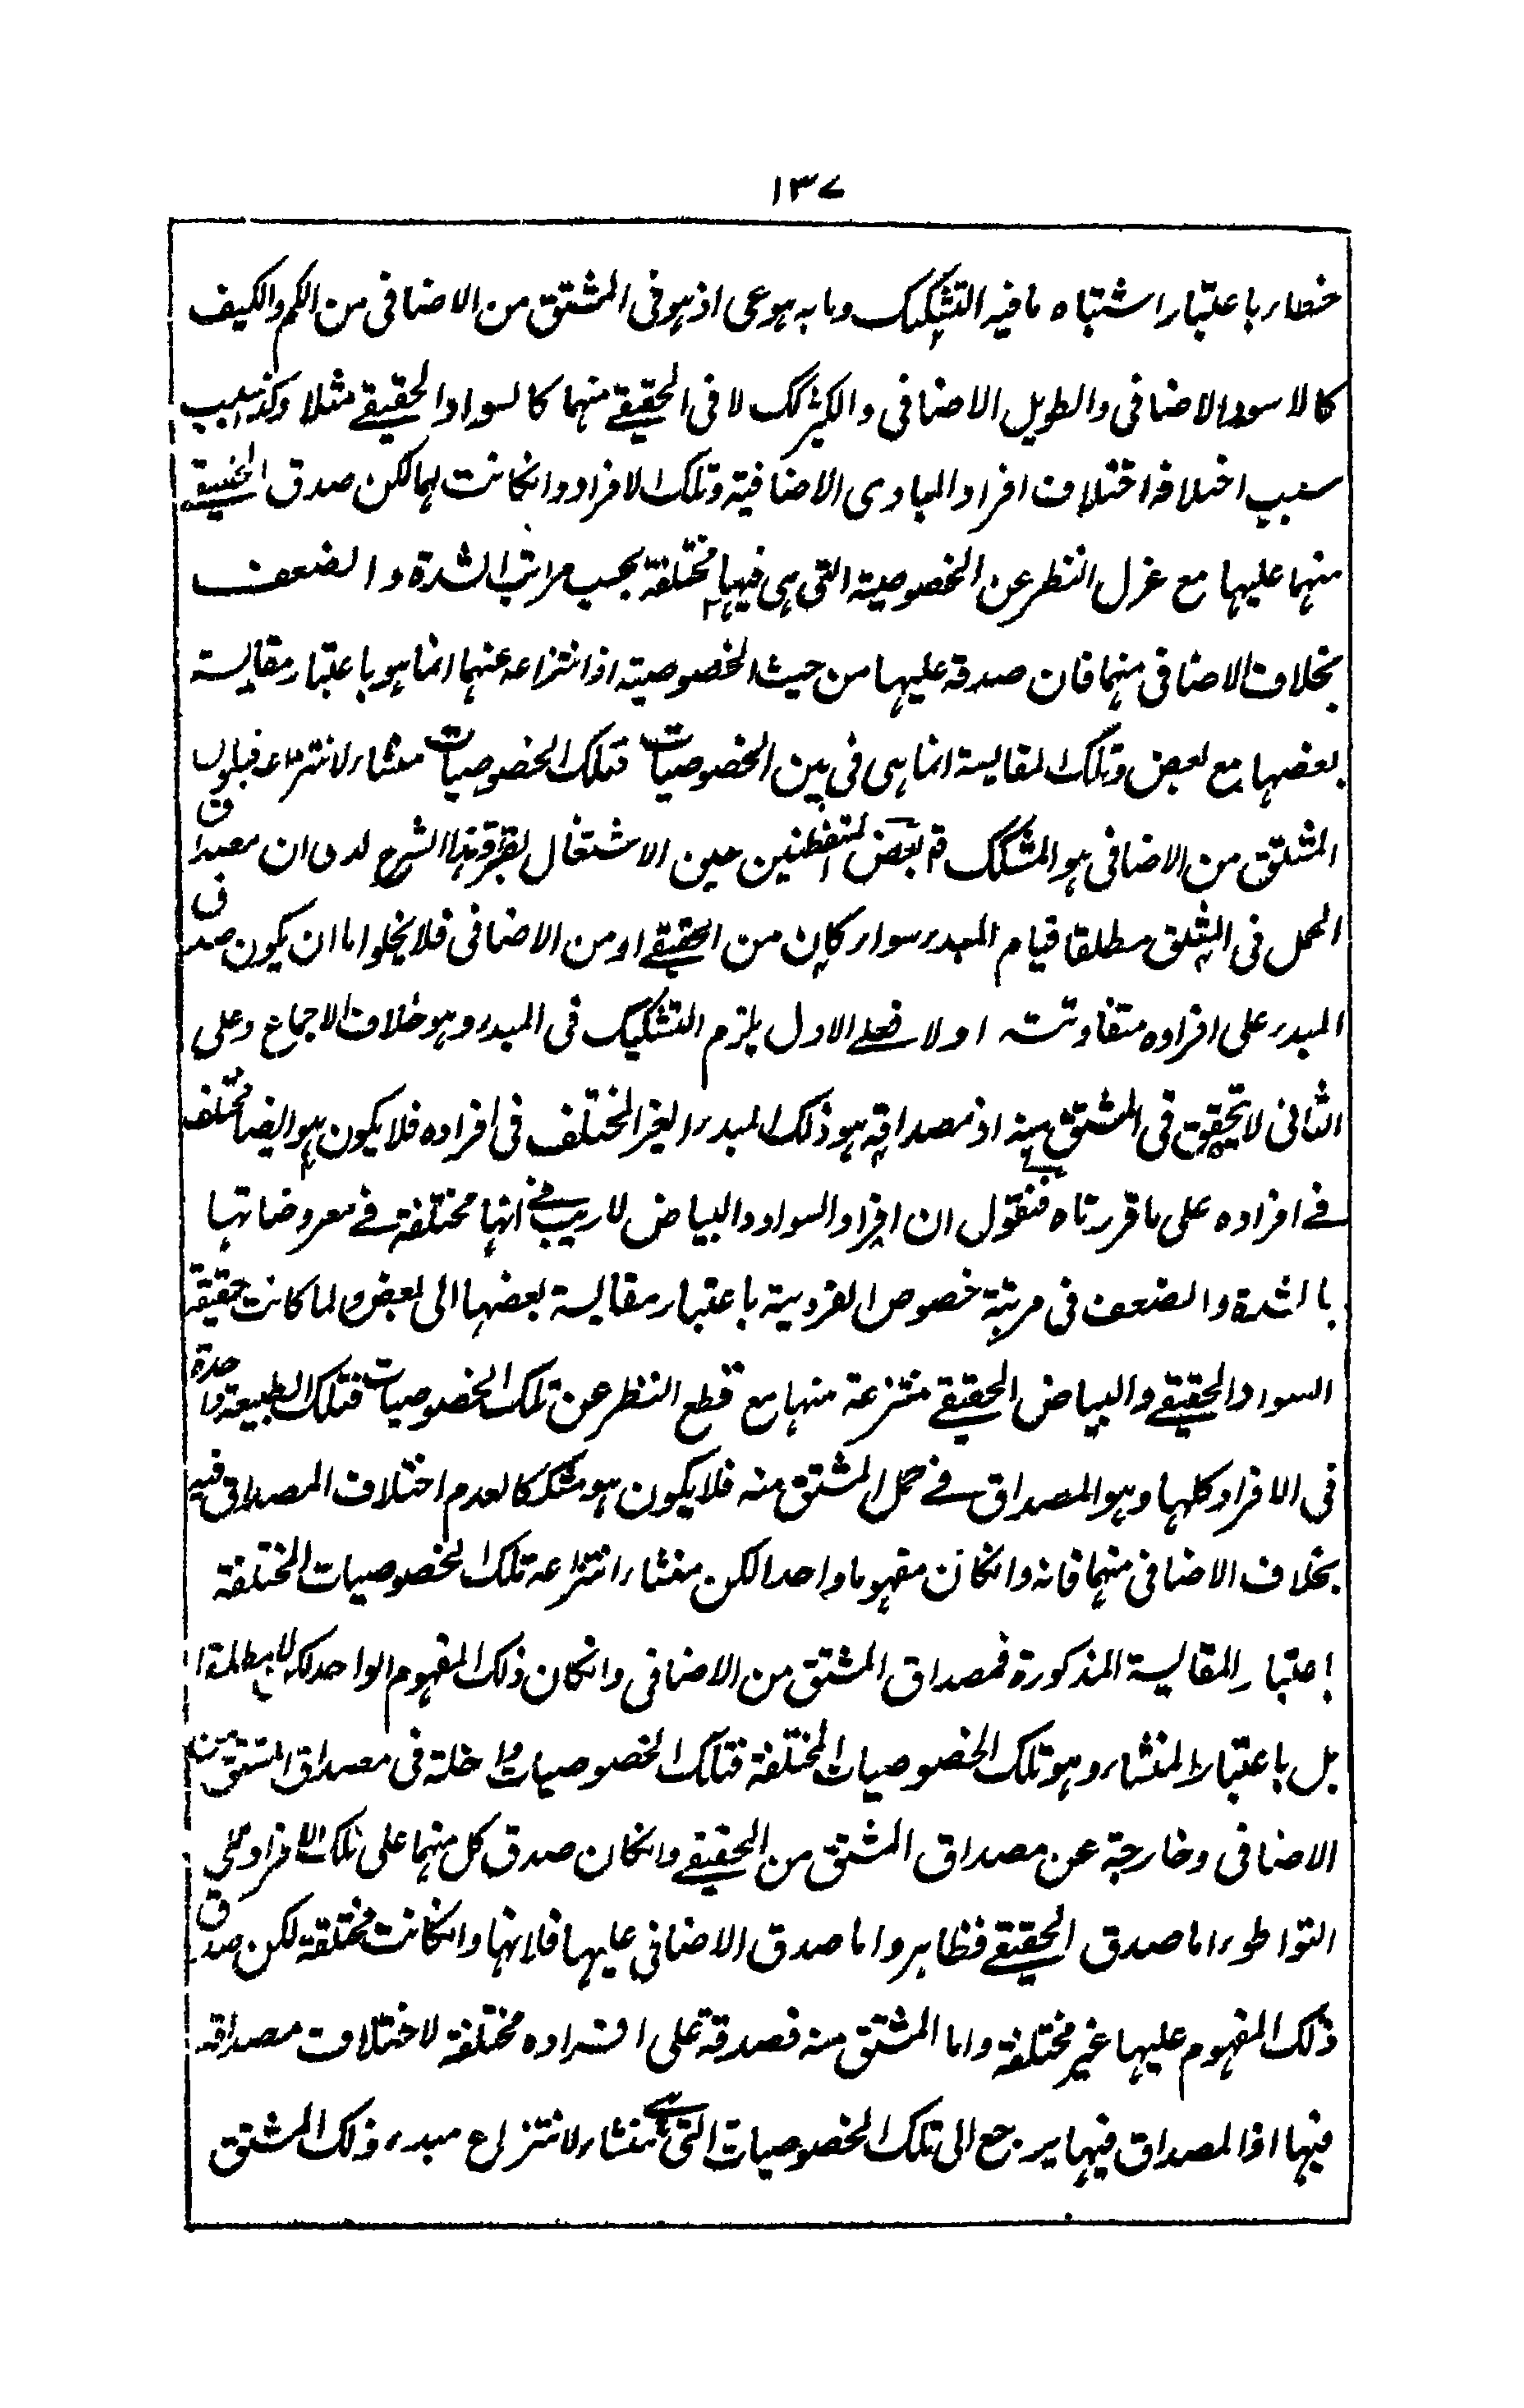 ١٣٧
خطاء باعتبار اشتباه ما فيه التشكيك وما به هو عى اذ هو فى المشتق من الاضافى من الكم والكيف
كالاسود الاضافى والطويل الاضافى والكثير كك لا فى الحقيقے منهما كالسواد الحقيقے مثلا
سبب اختلافه اختلاف افراد المبادى الاضافية وتلك الافراد وانكانت لهما لكن صدق الحقيقے
منهما عليها مع عزل النظر عن الخصوصية التى هى فيها مختلفة بحسب مراتب الشدة والضعف
بخلاف الاضافى منهما فان صدقه عليها من حيث الخصوصية اذ انتزاعه عنهما انما هو باعتبار مقايسة
بعضها مع بعض وتلك المقايسة انما هى فى بين الخصوصيات فتلك الخصوصيات منشاء لانتزاعه فيكون
المشتق من الاضافى هو المشكك قم بعض المتفطنين حين الاشتغال بقراءة هذا الشرح لدى ان مصداق
الحمل فى المشتق مطلقا قيام المبدء سواء كان من الحقيقے او من الاضافى فلا يخلو اما ان يكون صدق
المبدء على افراده متفاوتة اولا فعلے الاول يلزم التشكيك فى المبدء وهو خلاف الاجماع وعلى
الثانى لا يتحقق فى المشتق منه اذ مصداقه هو ذلك المبدء الغير المختلف فى افراده فلا يكون هو ايضا مختلف
فے افراده على ما قررتاه فنقول ان افراد السواد والبياض لا ريب فے انها مختلفة فے معروضاتها
بالشدة والضعف فى مرتبة خصوص الفردية باعتبار مقايسة بعضها الى بعض ولما كانت حقيقة
السواد الحقيقے والبياض الحقيقے منتزعة منها مع قطع النظر عن تلك الخصوصيات فتلك الطبيعة واحدة
فى الافراد كلها وهو المصداق فے حمل المشتق منه فلا يكون هو مشككا لعدم اختلاف المصداق فيه
بخلاف الاضافى منهما فانه وانكان مفهوما واحدا لكن منشاء انتزاعه تلك الخصوصيات المختلفة
باعتبار المقايسة المذكورة فمصداق المشتق من الاضافى وانكان ذلك المفهوم الواحد لكن لا مطلقا
بل باعتبار المنشاء وهو تلك الخصوصيات المختلفة فتلك الخصوصيات داخلة فى مصداق المشتق من
الاضافى وخارجة عن مصداق المشتق من الحقيقے وانكان صدق كل منهما على تلك الافراد على
التواطوء اما صدق الحقيقے فظاهر واما صدق الاضافى عليها فلانها وانكانت مختلفة لكن صدق
ذلك المفهوم عليها غير مختلفة واما المشتق منه فصدقه على افراده مختلفة لاختلاف مصداقه
فيها اذ المصداق فيها يرجع الى تلك الخصوصيات التى هے منشاء لانتزاع مبدء ذلك المشتق